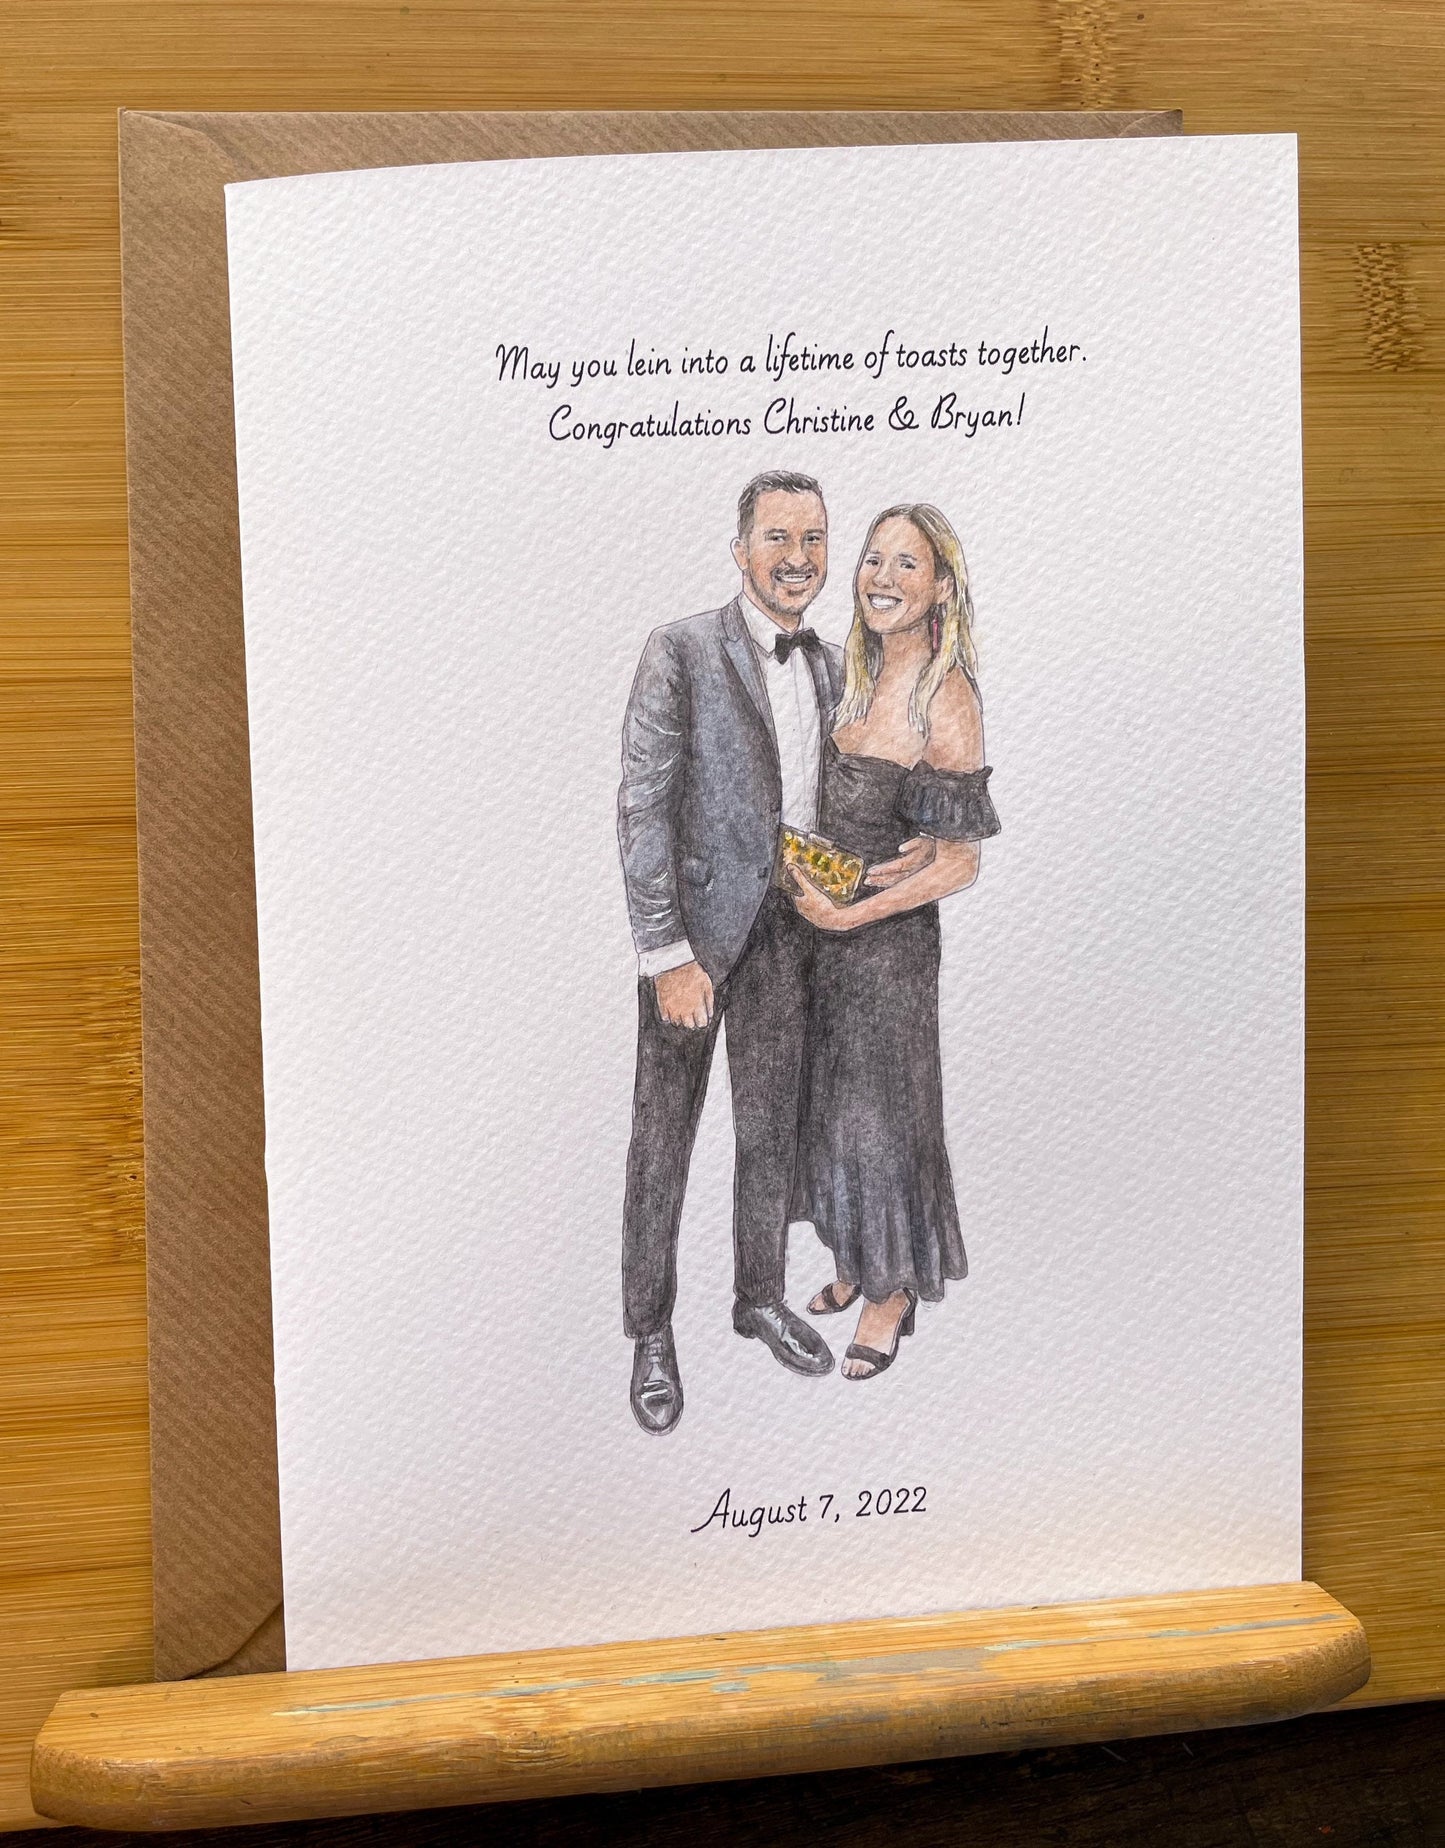 May you lein into a lifetime of toasts together.
Congratulations Christine & Bryan!
August 7, 2022